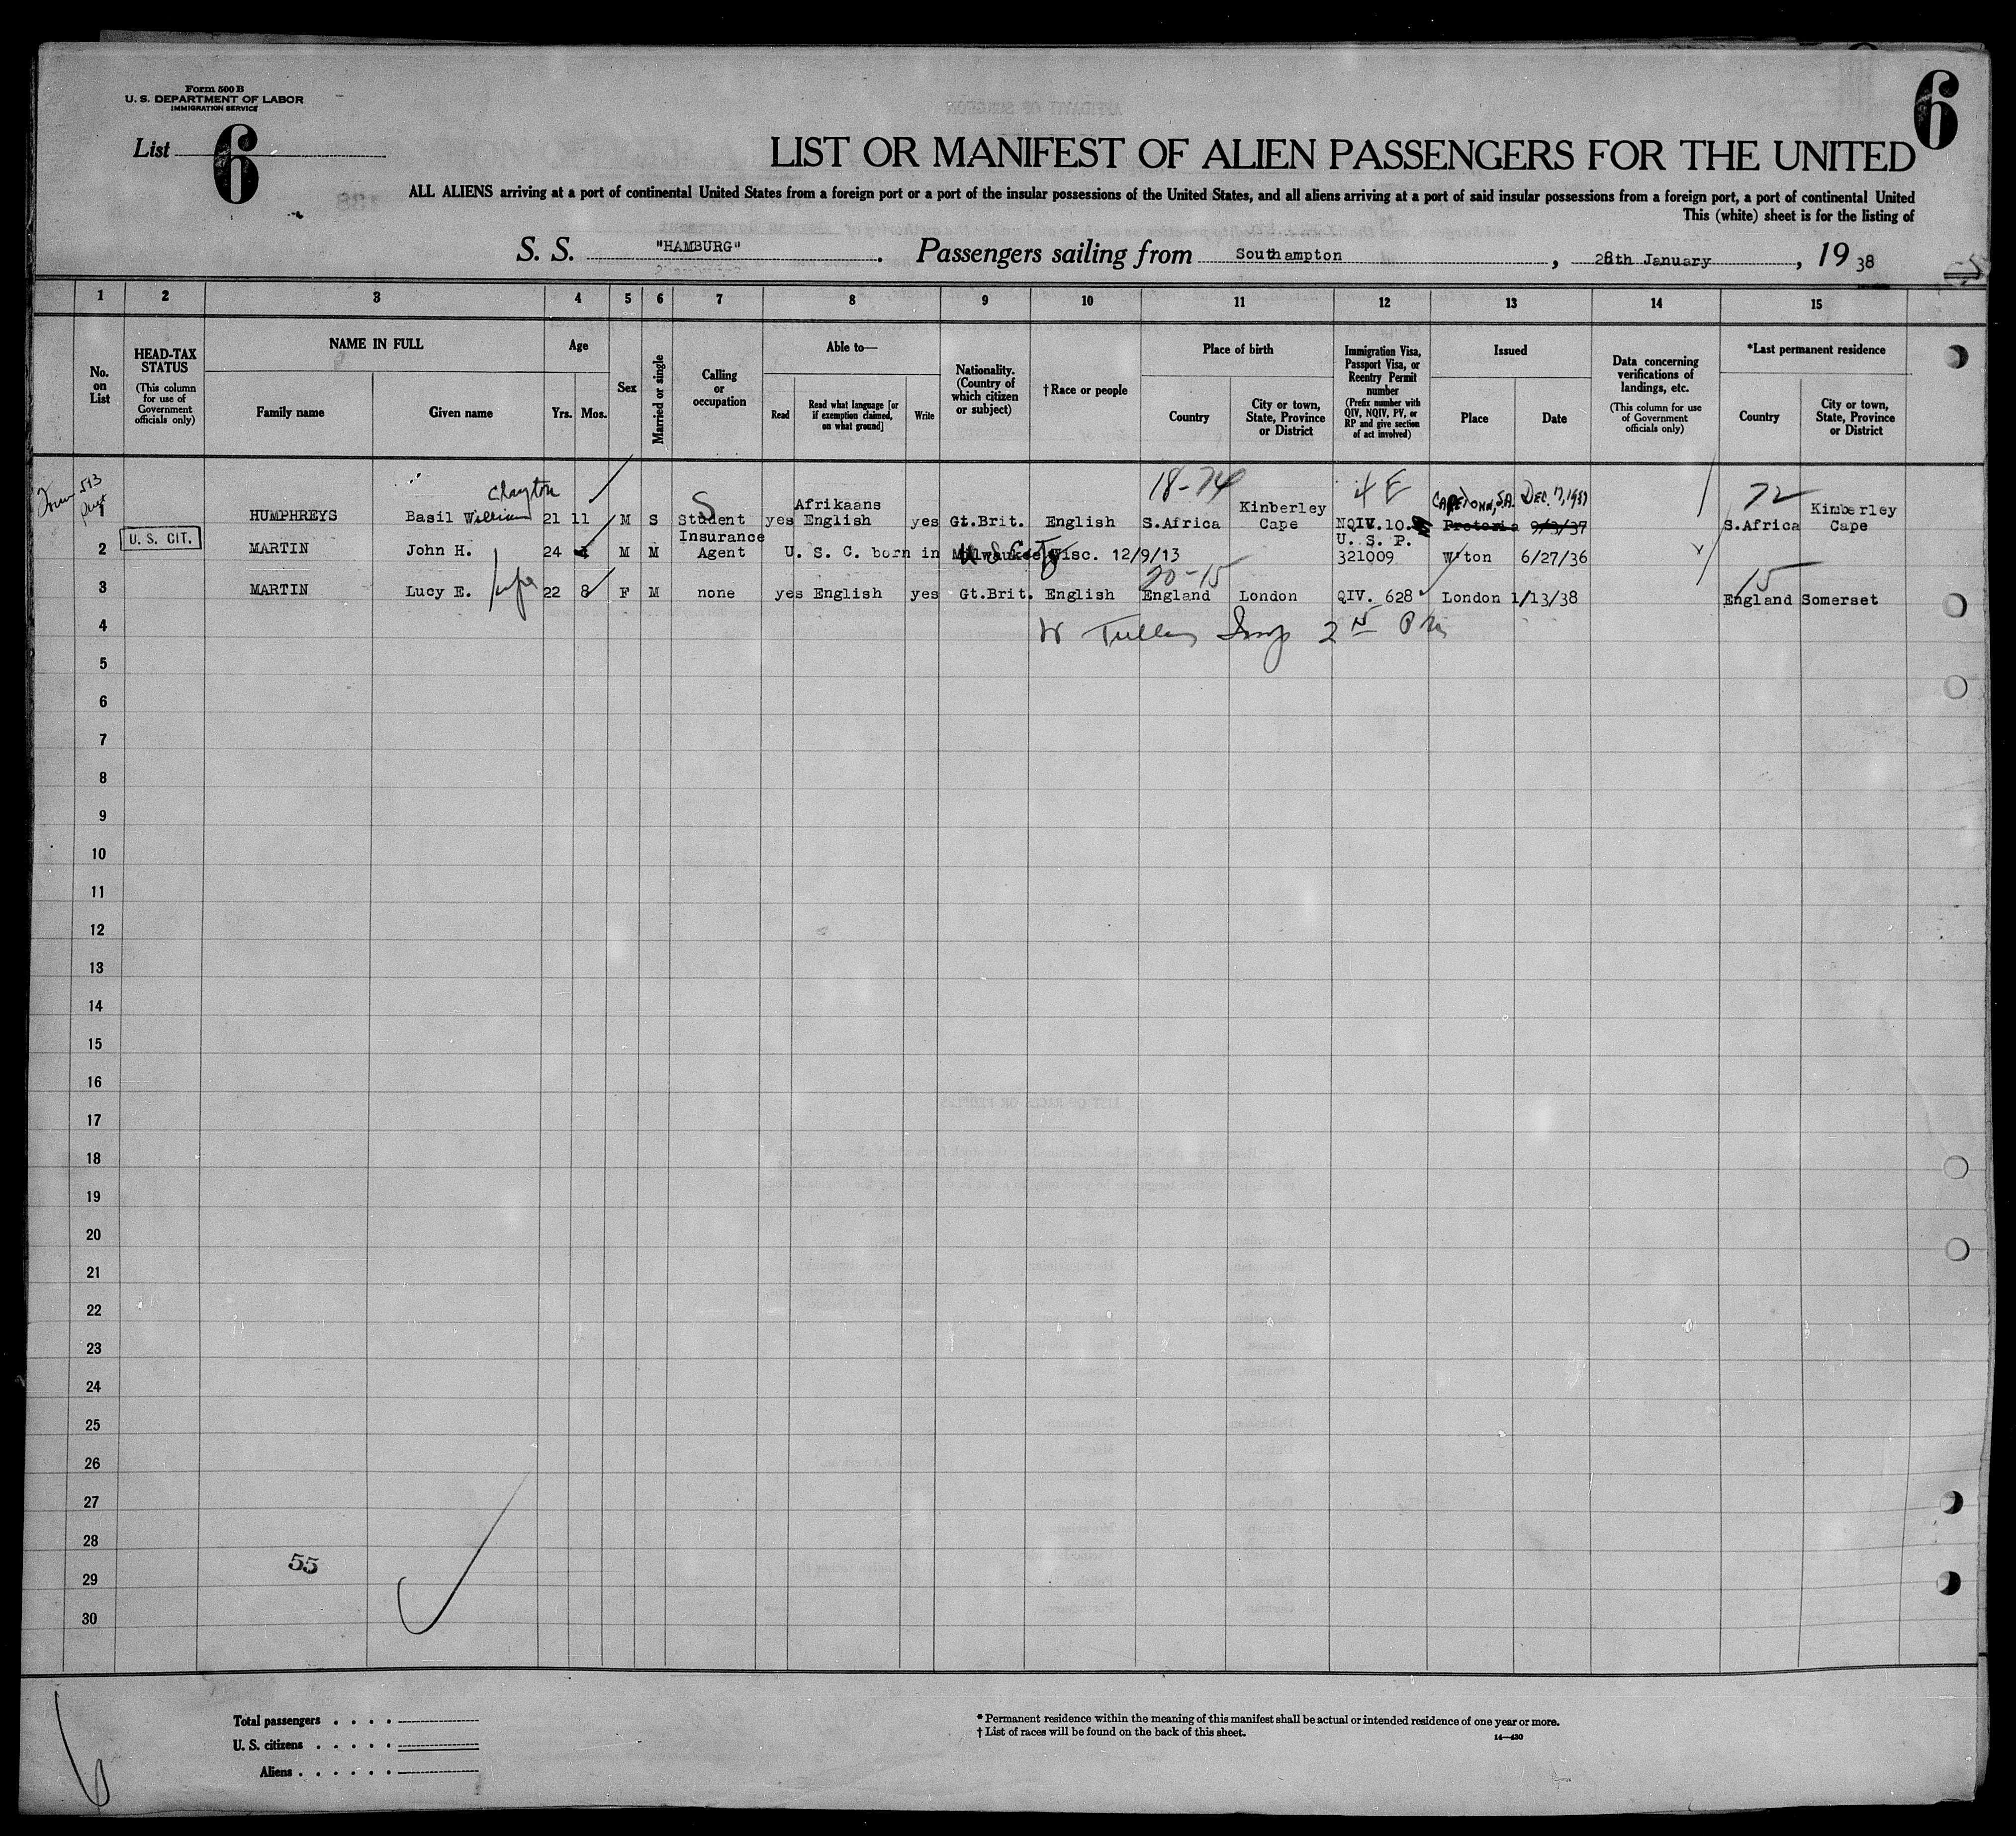 Form 500 B
U. S. DEPARTMENT OF LABOR
IMMIGRATION SERVICE
List 6
6
LIST OR MANIFEST OF ALIEN PASSENGERS FOR THE UNITED
ALL ALIENS arriving at a port of continental United States from a foreign port or a port of the insular possessions of the United States, and all aliens arriving at a port of said insular possessions from a foreign port, a port of continental United
This (white) sheet is for the listing of
S. S. "HAMBURG". Passengers sailing from Southampton, 28th January, 19 38
1 2 3 4 5 6 7 8 9 10 11 12 13 14 15
No. on List
HEAD-TAX STATUS
(This column for use of Government officials only)
NAME IN FULL
Family name
Given name
Age
Yrs. Mos.
Sex
Married or single
Calling or occupation
Able to—
Read
Read what language [or if exemption claimed, on what ground]
Write
Nationality. (Country of which citizen or subject)
† Race or people
Place of birth
Country
City or town, State, Province or District
Immigration Visa, Passport Visa, or Reentry Permit number
(Prefix number with QIV, NQIV, PV, or RP and give section of act involved)
Issued
Place
Date
Data concerning verifications of landings, etc.
(This column for use of Government officials only)
*Last permanent residence
Country
City or town, State, Province or District
513
Clayton
S
18-74
4 E
CAPETOWN, S.A. DEC. 7, 1937
72
Afrikaans
Kinberley
Kimberley
1 HUMPHREYS Basil William 21 11 M S Student yes English yes Gt.Brit. English S.Africa Cape NQIV.10. Pretoria 9/3/37 S.Africa Cape
U. S. CIT.
Insurance
U. S. P.
2 MARTIN John H. 24 1 M M Agent U. S. C. born in Milwaukee Wisc. 12/9/13 321009 W'ton 6/27/36
U S Cit
20-15
15
3 MARTIN Lucy E. wife 22 8 F M none yes English yes Gt.Brit. English England London QIV. 628 London 1/13/38 England Somerset
4
W Tullen Insp 2
5
6
7
8
9
10
11
12
13
14
15
16
17
18
19
20
21
22
23
24
25
26
27
28
55
29
30
Total passengers . . . .
U. S. citizens . . . . .
Aliens . . . . . .
* Permanent residence within the meaning of this manifest shall be actual or intended residence of one year or more.
† List of races will be found on the back of this sheet.
14—430